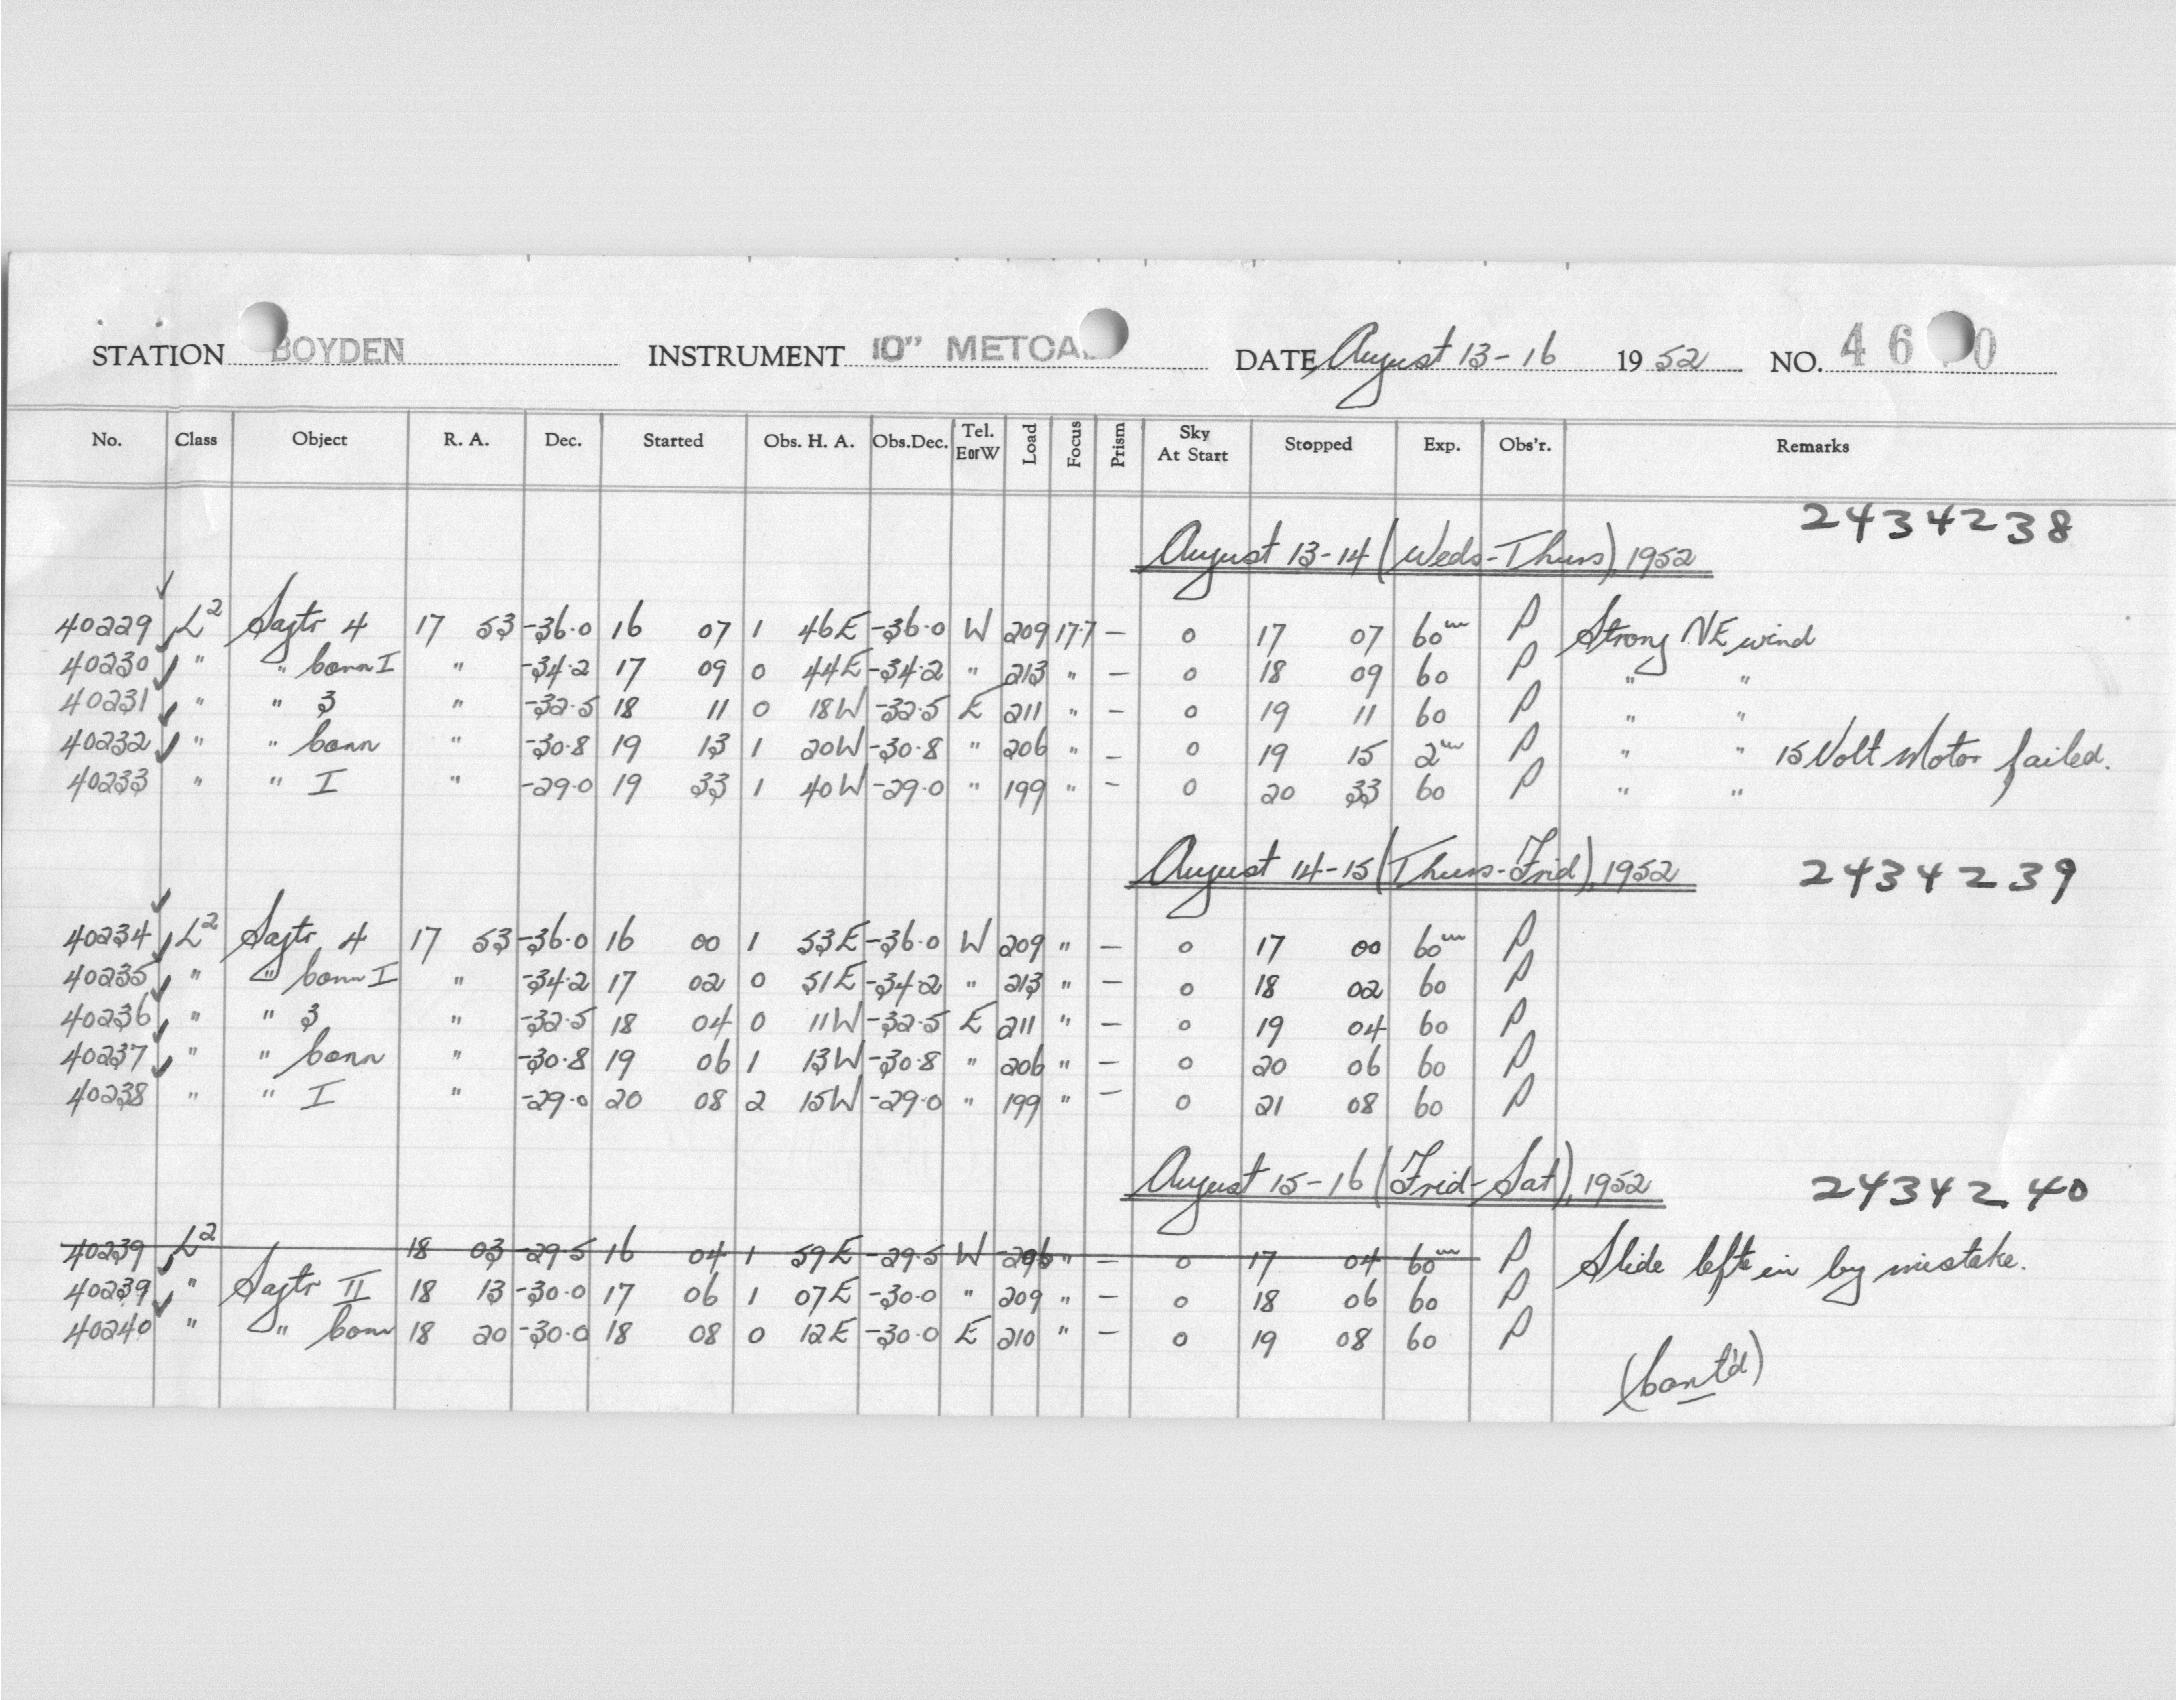 STATION BOYDEN INSTRUMENT 10" METCA DATE August 13-16 1952 NO. 46 0
No. Class Object R. A. Dec. Started Obs. H. A. Obs.Dec. Tel. E or W Load Focus Prism Sky At Start Stopped Exp. Obs'r. Remarks
2434238
August 13-14 (Weds-Thurs), 1952
40229 L² Sagtr 4 17 53 -36.0 16 07 1 46E -36.0 W 209 17.7 — 0 17 07 60m P Strong NE wind
40230 " " Corr I " -34.2 17 09 0 44E -34.2 " 213 " — 0 18 09 60 P " "
40231 " " 3 " -32.5 18 11 0 18W -32.5 E 211 " — 0 19 11 60 P " "
40232 " " Corr " -30.8 19 13 1 20W -30.8 " 206 " — 0 19 15 2m P " " 15 Volt Motor failed.
40233 " " I " -29.0 19 33 1 40W -29.0 " 199 " — 0 20 33 60 P " "
August 14-15 (Thurs-Frid), 1952 2434239
40234 L² Sagtr 4 17 53 -36.0 16 00 1 53E -36.0 W 209 " — 0 17 00 60m P
40235 " " Corr I " -34.2 17 02 0 51E -34.2 " 213 " — 0 18 02 60 P
40236 " " 3 " -32.5 18 04 0 11W -32.5 E 211 " — 0 19 04 60 P
40237 " " Corr " -30.8 19 06 1 13W -30.8 " 206 " — 0 20 06 60 P
40238 " " I " -29.0 20 08 2 15W -29.0 " 199 " — 0 21 08 60 P
August 15-16 (Frid-Sat), 1952 2434240
40239 L² 18 03 -29.5 16 04 1 59E -29.5 W 206 " — 0 17 04 60m P Slide left in by mistake.
40239 " Sagtr II 18 13 -30.0 17 06 1 07E -30.0 " 209 " — 0 18 06 60 P
40240 " " Corr 18 20 -30.0 18 08 0 12E -30.0 E 210 " — 0 19 08 60 P
(Cont'd)